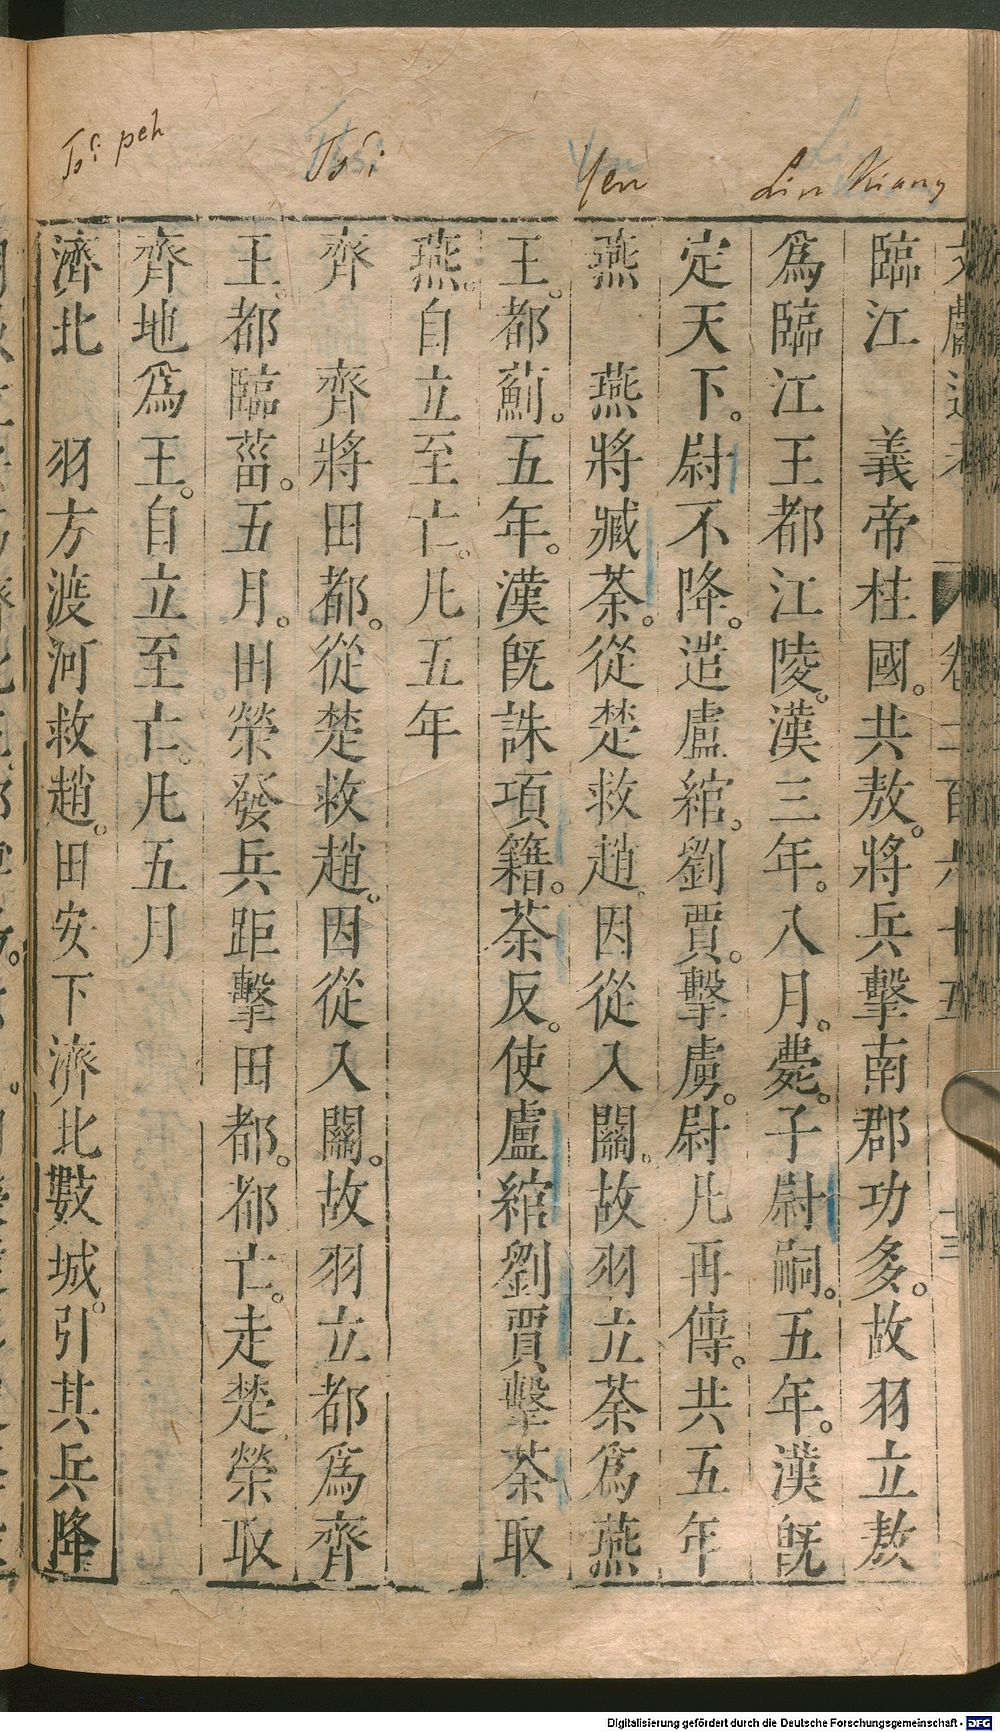 Lin Kiang
Yen
Tsi
Tsi peh
臨江　義帝柱國。共敖。將兵擊南郡功多。故羽立敖
為臨江王都江陵。漢三年。八月。薨。子尉嗣。五年。漢旣
定天下。尉不降。造盧綰。劉賈。擊虜。尉凡再傳。共五年
燕　燕將臧荼。從楚救趙。因從入關。故羽立荼爲燕
王。都薊。五年。漢旣誅項籍。荼反。使盧綰劉賈擊荼取
燕。自立至亡。凡五年
齊　齊將田都。從楚救趙。因從入關。故羽立都爲齊
王。都臨菑。五月。田榮發兵距擊田都。都亡。走楚榮取
齊地爲王。自立至亡。凡五月
濟北　羽方渡河救趙。田安下濟北數城。引其兵降
Digitalisierung gefördert durch die Deutsche Forschungsgemeinschaft - DFG